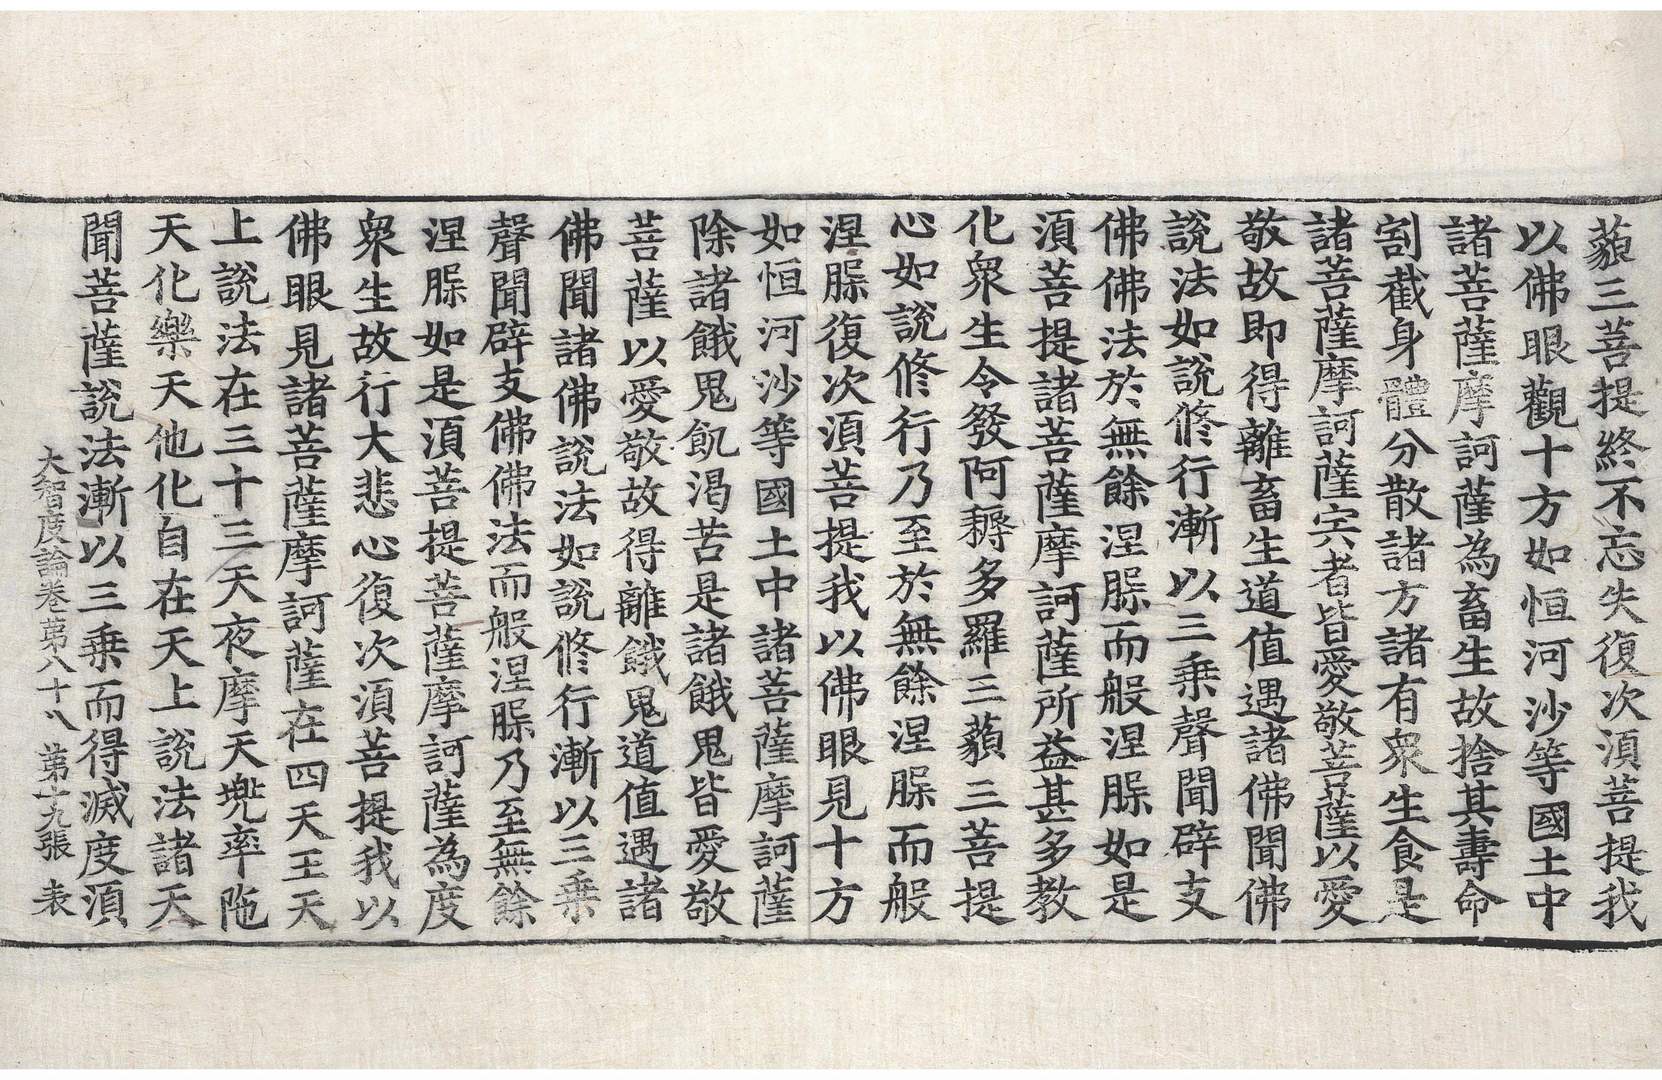 藐三菩提終不忘失復次湏菩提我
以佛眼觀十方如恒河沙等國土中
諸菩薩摩訶薩為畜生故捨其壽命
割截身體分散諸方諸有衆生食是
諸菩薩摩訶薩宍者皆愛敬菩薩以愛
敬故即得離畜生道值遇諸佛聞佛
說法如說修行漸以三乗聲聞辟支
佛佛法於無餘涅槃而般涅槃如是
湏菩提諸菩薩摩訶薩所益甚多教
化衆生令發阿耨多羅三藐三菩提
心如說修行乃至於無餘涅槃而般
涅槃復次湏菩提我以佛眼見十方
如恒河沙等國土中諸菩薩摩訶薩
除諸餓鬼飢渴苦是諸餓鬼皆愛敬
菩薩以愛敬故得離餓鬼道值遇諸
佛聞諸佛說法如說修行漸以三乗
聲聞辟支佛佛法而般涅槃乃至無餘
涅槃如是湏菩提菩薩摩訶薩為度
衆生故行大悲心復次湏菩提我以
佛眼見諸菩薩摩訶薩在四天王天
上說法在三十三天夜摩天兠率陁
天化樂天他化自在天上說法諸天
聞菩薩說法漸以三乗而得滅度湏
大智度論卷苐八十八 苐十九張 表